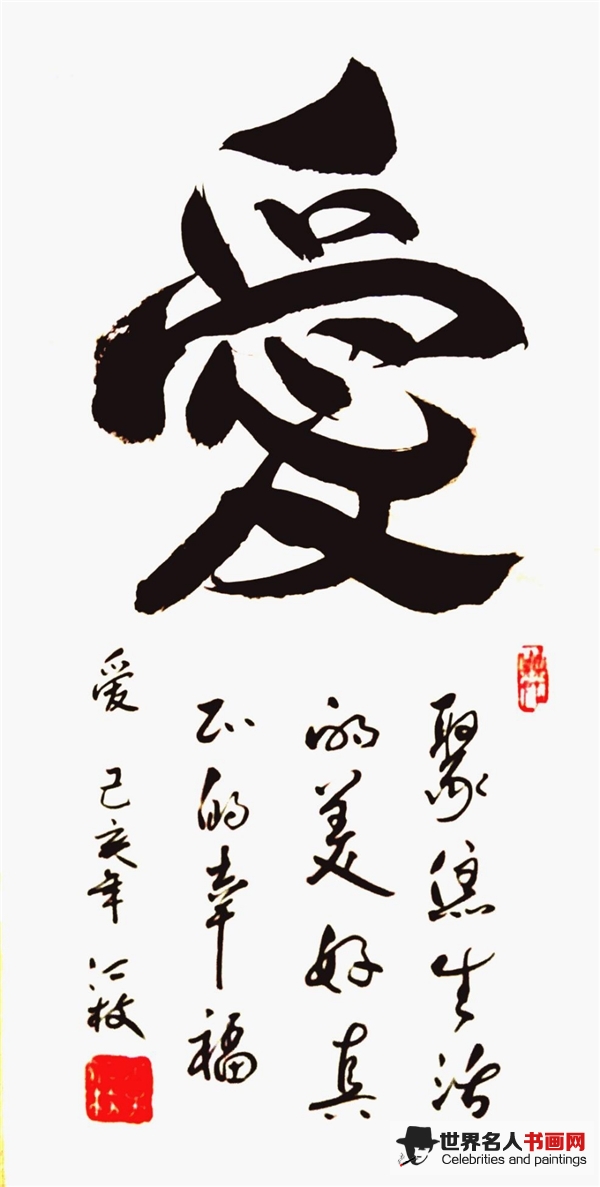 愛
聚焦生活
的美好真
正的幸福
爱 己亥年 江枝
世界名人书画网
Celebrities and paintings